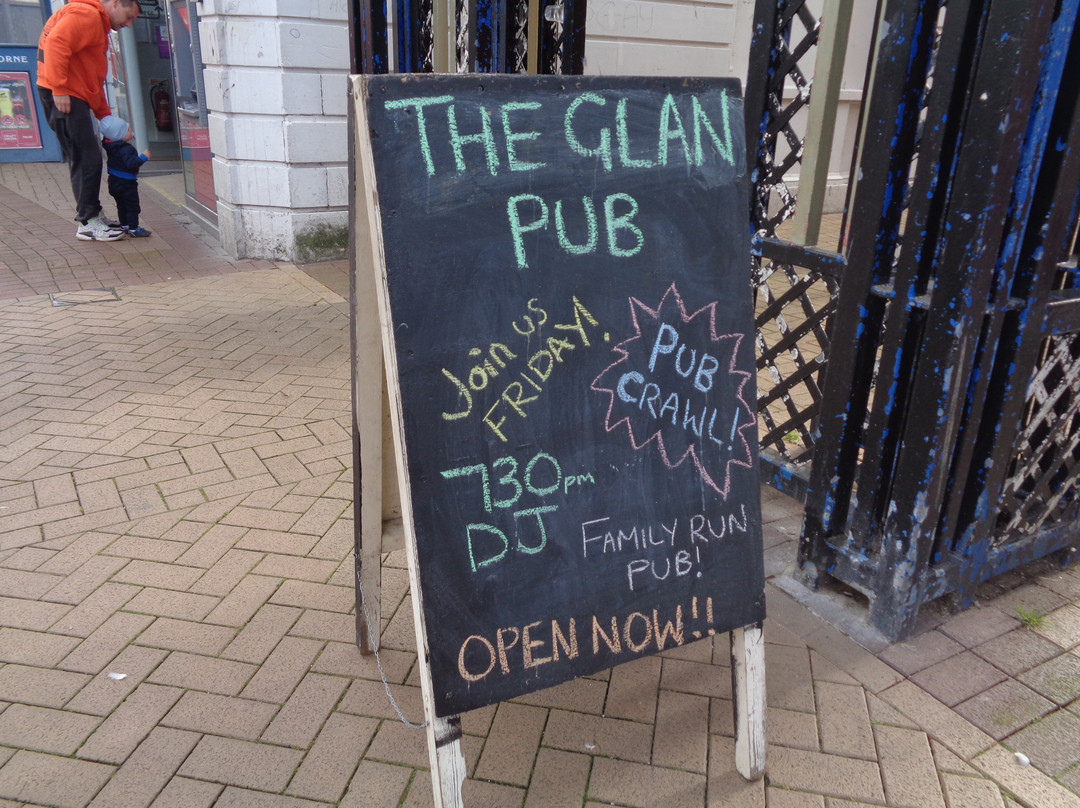 ORNE
THE GLAN
PUB
Join us
FRIDAY!
PUB
CRAWL!
730pm
DJ
FAMILY RUN
PUB!
OPEN NOW!!